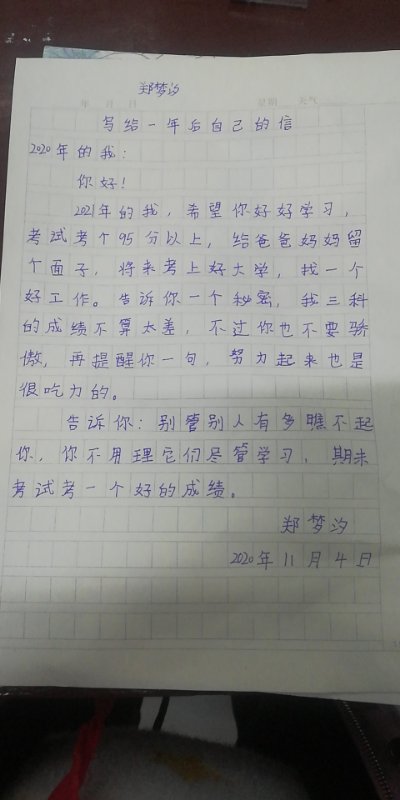 郑梦汐
年 月 日 星期 天气
写给一年后自己的信
2020年的我：
你好！
2021年的我，希望你好好学习，
考试考个95分以上，给爸爸妈妈留
个面子，将来考上好大学，找一个
好工作。告诉你一个秘密，我三科
的成绩不算太差，不过你也不要骄
傲，再提醒你一句，努力起来也是
很吃力的。
告诉你：别管别人有多瞧不起
你，你不用理它们尽管学习，期末
考试考一个好的成绩。
郑梦汐
2020年11月4日